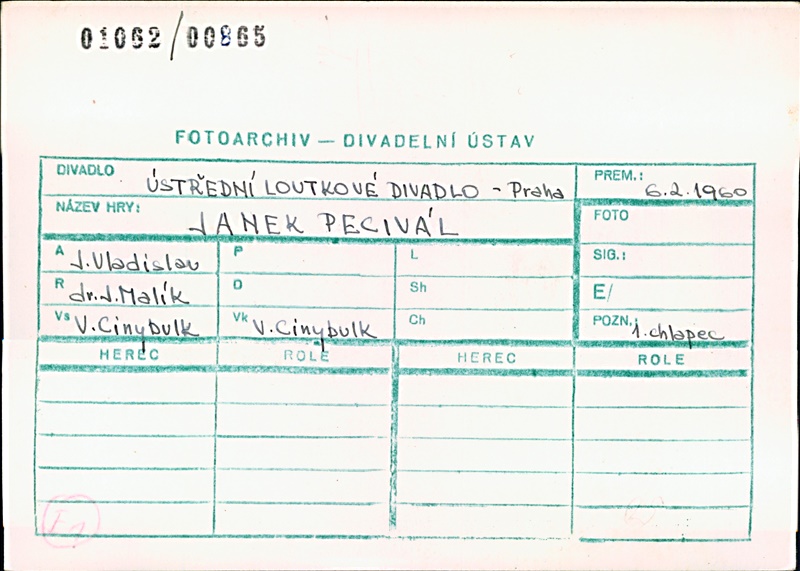 01062/00865
FOTOARCHIV — DIVADELNÍ ÚSTAV
DIVADLO ÚSTŘEDNÍ LOUTKOVÉ DIVADLO - Praha PREM.: 6.2.1960
NÁZEV HRY: JANEK PECIVÁL FOTO
A J.Vladislav P L SIG.:
R dr.J.Malík D Sh E/
Vs V.Cinybulk Vk V.Cinybulk Ch POZN.: 1.chlapec
HEREC ROLE HEREC ROLE